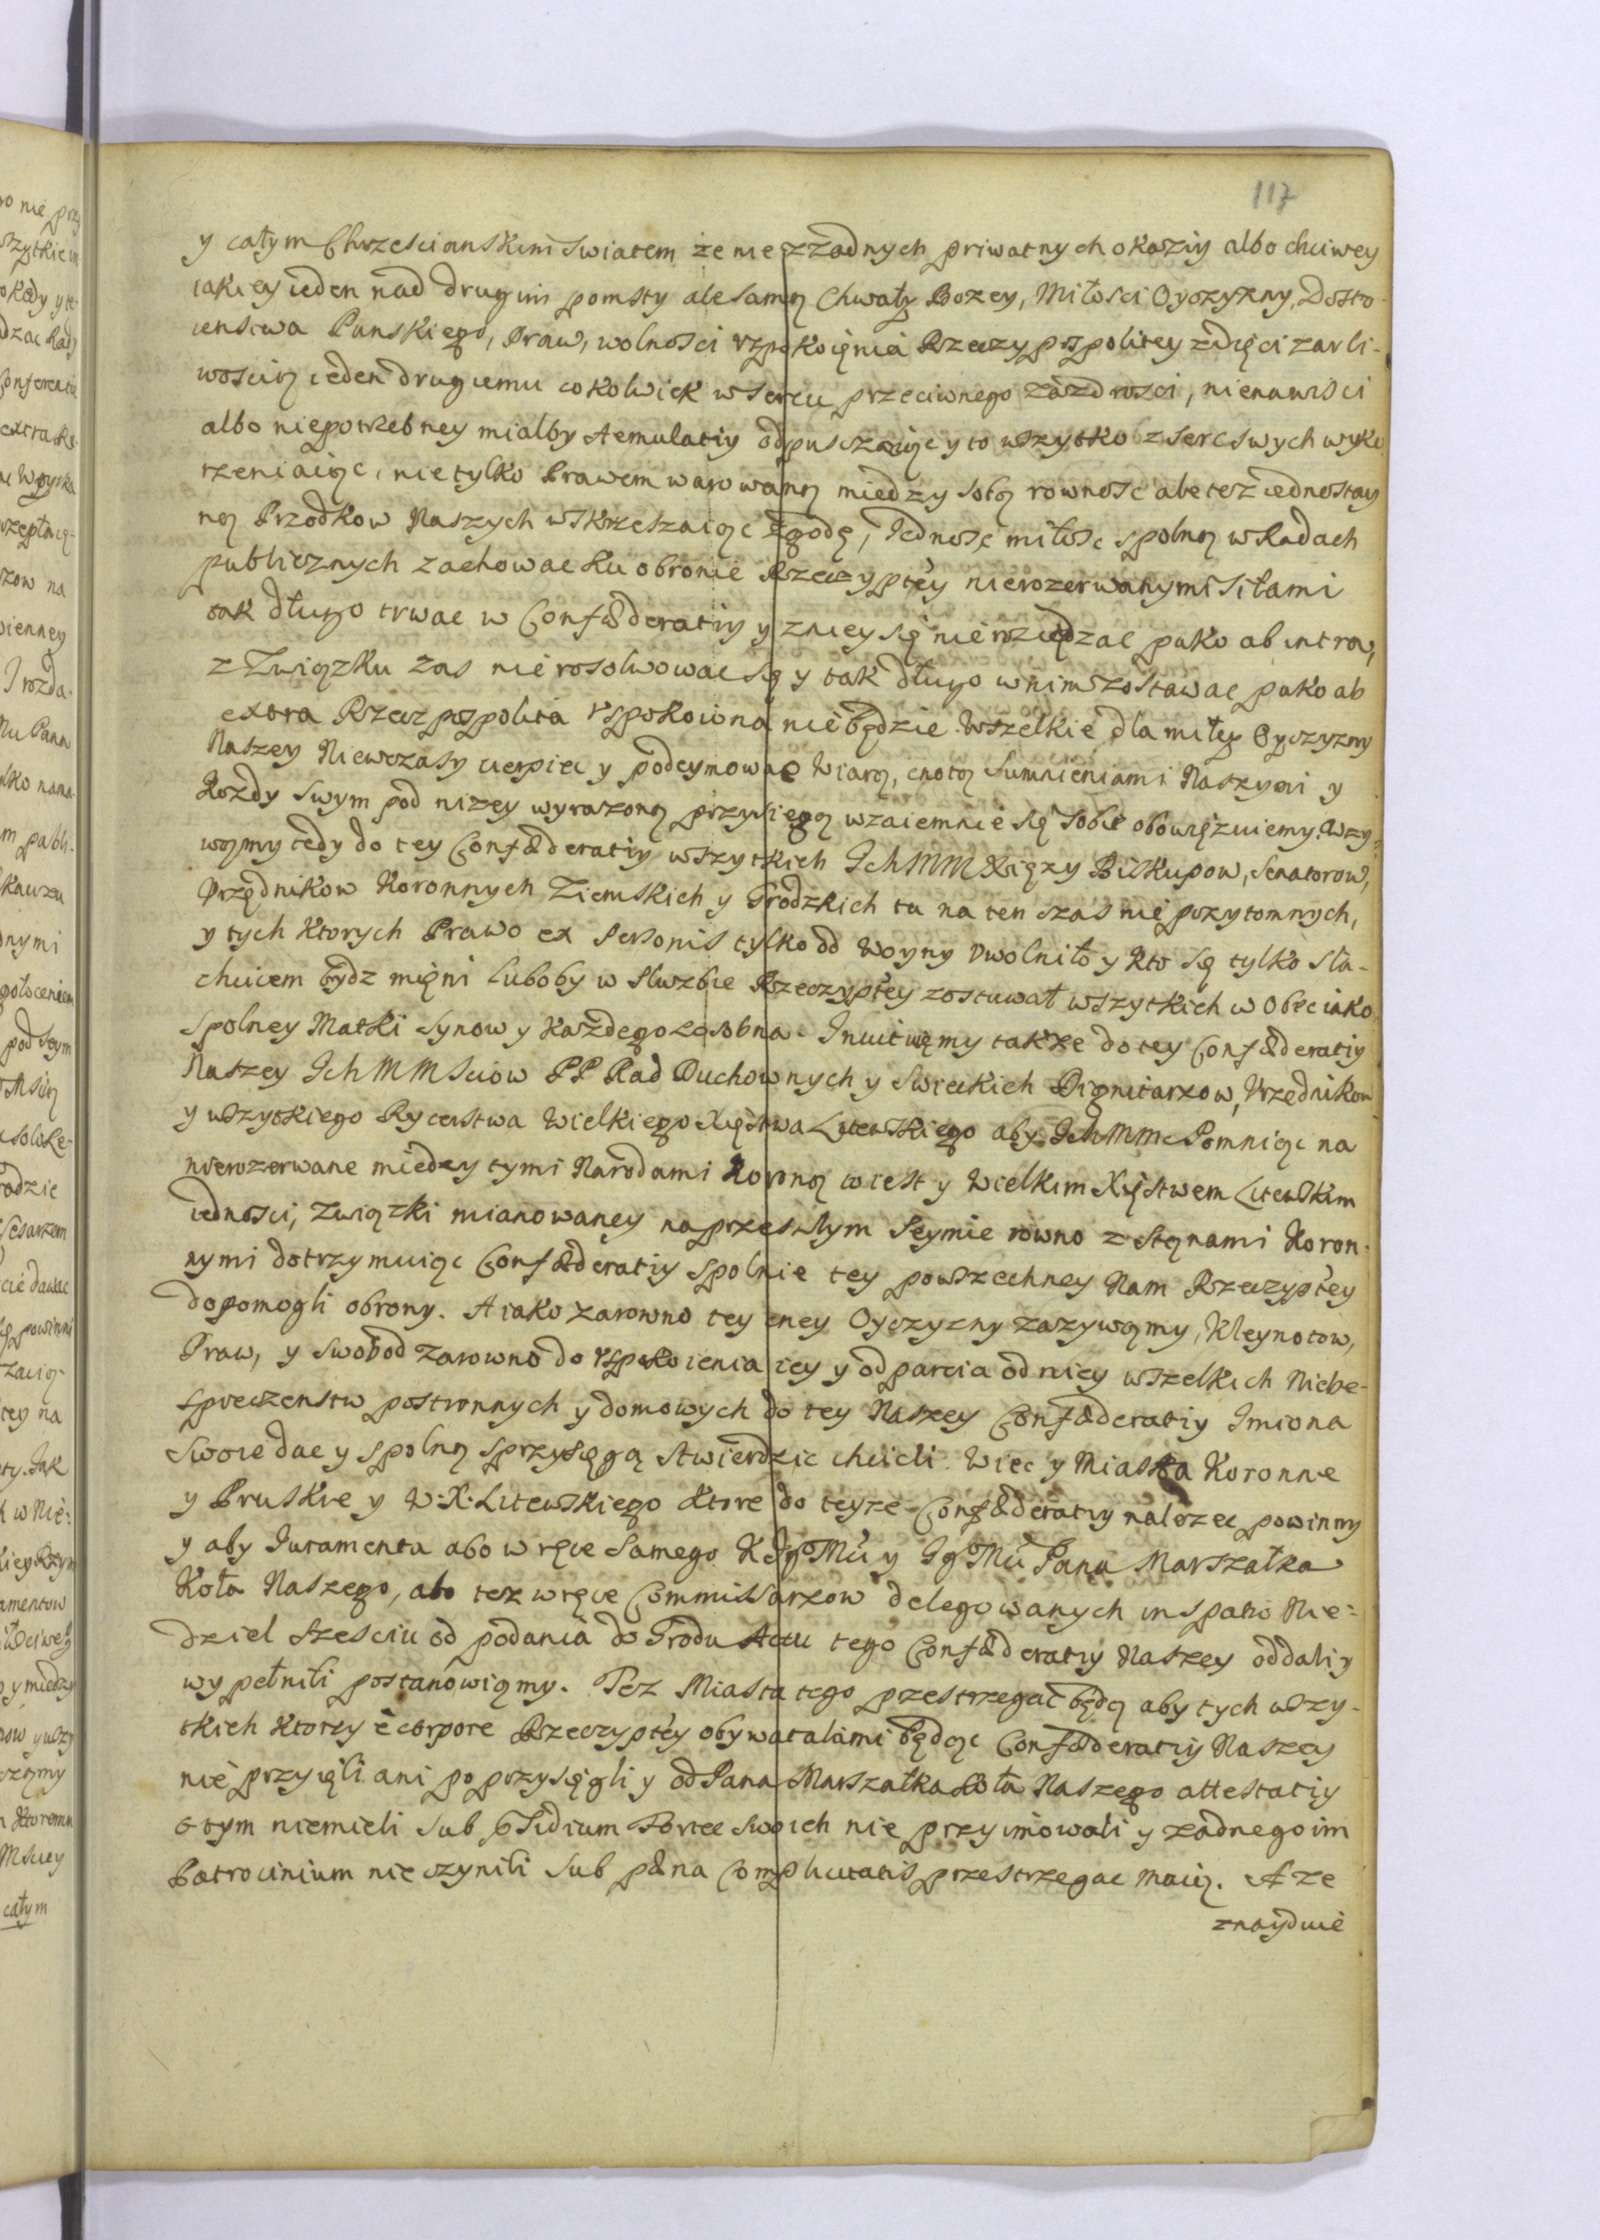 117
y całym Chrzescianskim Swiatem że nie z żadnych priwatnych okaziy albo chciwey
iakiey ieden nad drugim pomsty ale samą Chwały Bozey, Miłosci Oyczyzny, Dosto-
ienstwa Panskiego, Praw, wolnosci vspokoięnia Rzeczypospolitey zdięci zarli-
woscią ieden drugiemu cokolwiek w sercu przeciwnego zazdrosci, nienawisci
albo niepotrzebney mialby Aemulatiy odpusczaiąc y to wszytko z serc swych wyko
rzeniaiąc, nie tylko Prawem warowaną miedzy sobą rownosc ale tesz iednostay
ną Przodkow Naszych wskrzeszaiąc zgodę, Jednosc miłosc spolną w Radach
publicznych zachowac ku obronie Rzeczyptey nierozerwanymi siłami
tak długo trwac w Confæderatiy y zniey się nie rziędzac puko ab intra,
z Związku zas nie rosolwowac się y tak długo wnim zostawac puko ab
extra Rzeczpospolita vspokoiona nie będzie. Wszelkie dla miłey Oyczyzny
Naszey Niewczasy cierpiec y podeymowac Wiarą, cnotą Sumnieniami Naszymi y
Kozdy swym pod nizey wyrazoną przysiegą wzaiemnie się sobie obowięzuiemy. Wzy-
wąmy tedy do tey Confæderatiy wszytkich IchMM Xięzy Biskupow, Senatorow,
Vrzędnikow Koronnych Ziemskich y Grodzkich tu na ten czas nie przytomnych,
y tych Ktorych Prawo ex Personis tylko od Woyny Vwolniło y kto się tylko sla-
chcicem bydz mięni lub oby w sluzbie Rzeczyptey zostawał wszytkich w obec iako
Spolney Matki Synow y Kazdego zosobna. Inuituięmy takze do tey Confæderatiy
Naszey IchMMSciow PP Rad Duchownych y Swieckich Dignitarzow, Vrzędnikow
y wszytkiego Rycerstwa Wielkiego Xięstwa Litewskiego aby IchMMc Pomniąc na
nierozerwane miedzy tymi Narodami Koroną to iest y Wielkim Xięstwem Litewskim
iednosci, związki mianowaney na przeszłym Seymie rowno z Stęnami Koron-
nymi dotrzymuiąc Confæderatiy spolnie tey powszechney Nam Rzeczyptey
dopomogli obrony. A iako zarowno tey eney Oyczyzny zazywąmy, Kleynotow,
Praw, y Swobod zarowno do vspokoienia iey y odparcia od niey wszelkich Niebe-
spieczenstw postronnych y domowych do tey Naszey Confæderatiy Imiona
Swoie dac y spolną sprzysięgą stwierdzic chcieli. Wiec y Miasta Koronne
y Pruskie y W. X. Litewskiego ktore do teyze Confæderatiy nalezec powinny
y aby Juramenta abo w ręce samego K JgoMci y JgoMci Pana Marszałka
Koła Naszego, abo tez w ręce Commissarzow delegowanych in spatio Nie-
dziel szesciu od podania do Grodu Actu tego Confæderatiy Naszey oddali y
wypełnili postanowiąmy. Tez Miasta tego przestrzegac będą aby tych wszy-
tkich ktorzy e corpore Rzeczyptey obywatalami będąc Confæderatiy Naszey
nie przyięli ani poprzysięgli y od Pana Marszałka Koła Naszego attestatiy
o tym niemieli sub præsidium Fortec swoich nie przyimowali y zadnego im
Patrocinium nie czynili sub pæna Complicitatis przestrzegac maią. A ze
znayduie